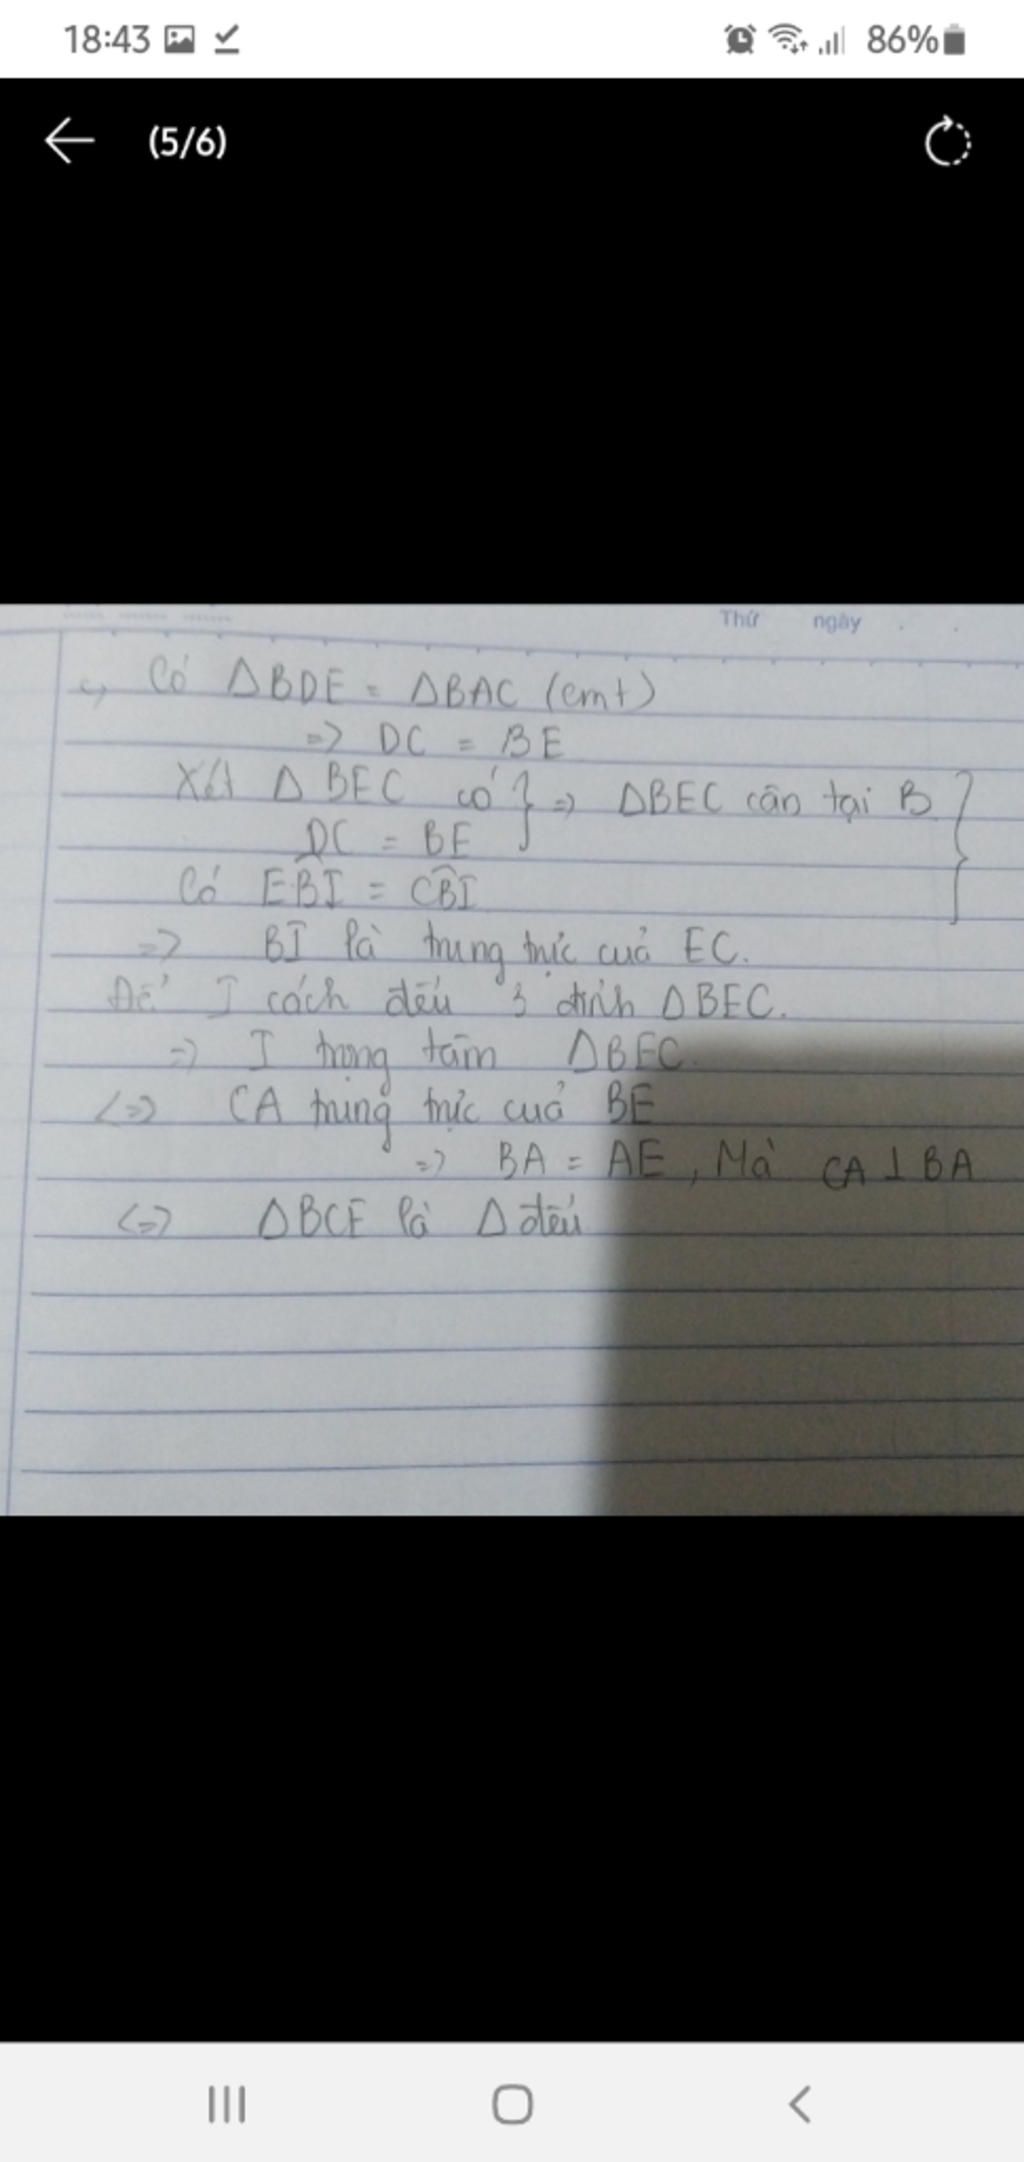 18:43 86%
(5/6)
Thứ ngày
c, Có ΔBDE = ΔBAC (cmt)
=> DC = BE
Xét Δ BEC có } => ΔBEC cân tại B }
DC = BE
Có EBI = CBI
=> BI là trung trực cuả EC.
Để I cách đều 3 đỉnh ΔBEC.
=> I trọng tâm ΔBEC.
<=> CA trung trực cuả BE
=> BA = AE, Mà CA ⊥ BA
<=> ΔBCE là Δ đều